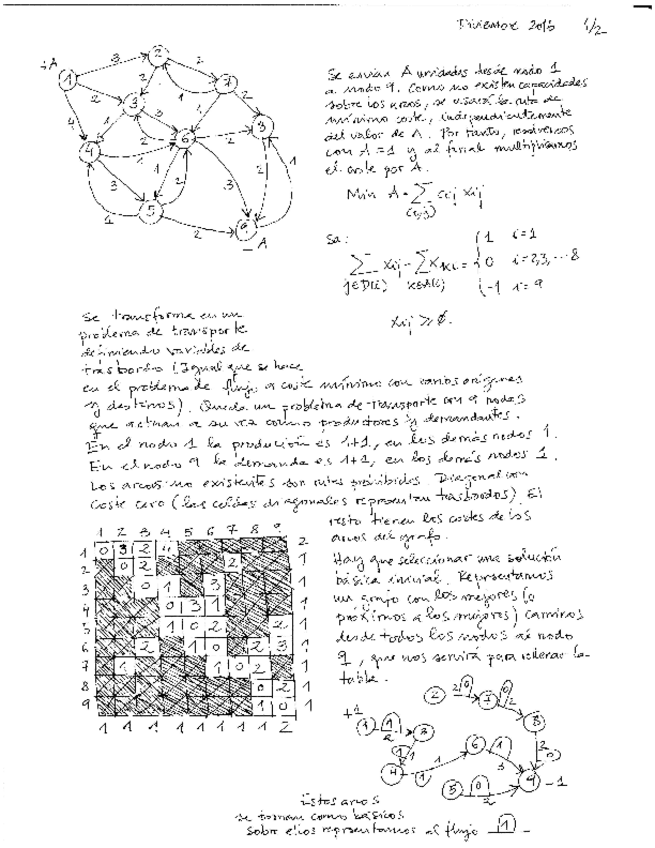 Diciembre 2015 1/2
Se envían A unidades desde nodo 1
a nodo 9. Como no existen capacidades
sobre los arcos, se usará la ruta de
mínimo coste, independientemente
del valor de A. Por tanto, resolvemos
con A = 1 y al final multiplicamos
el coste por A.
Min A·∑ cij xij
(i,j)
sa:
∑ xij - ∑ xki = { 1 i=1
0 i=2,3,...8
-1 i=9
j∈D(i) k∈A(i)
xij ≥ 0.
Se transforma en un
problema de transporte
definiendo variables de
trasbordo (Igual que se hace
en el problema de flujo a coste mínimo con varios orígenes
y destinos). Queda un problema de transporte con 9 nodos
que actúan a su vez como productores y demandantes.
En el nodo 1 la producción es 1+1, en los demás nodos 1.
En el nodo 9 la demanda es 1+1, en los demás nodos 1.
Los arcos no existentes son rutas prohibidas. Diagonal con
coste cero (las celdas diagonales representan trasbordos). El
resto tienen los costes de los
arcos del grafo.
Hay que seleccionar una solución
básica inicial. Representamos
un grafo con los mejores (o
próximos a los mejores) caminos
desde todos los nodos al nodo
9, que nos servirá para rellenar la
tabla.
1 2 3 4 5 6 7 8 9
1 0 3 2 4 2
2 0 2 2 1
3 0 1 3 1
4 0 3 1 1
5 1 0 2 2 1
6 2 1 0 2 3 1
7 1 1 0 2 1
8 0 2 1
9 1 0 1
1 1 1 1 1 1 1 1 2
Estos arcos
se toman como básicos
sobre ellos representamos el flujo 1